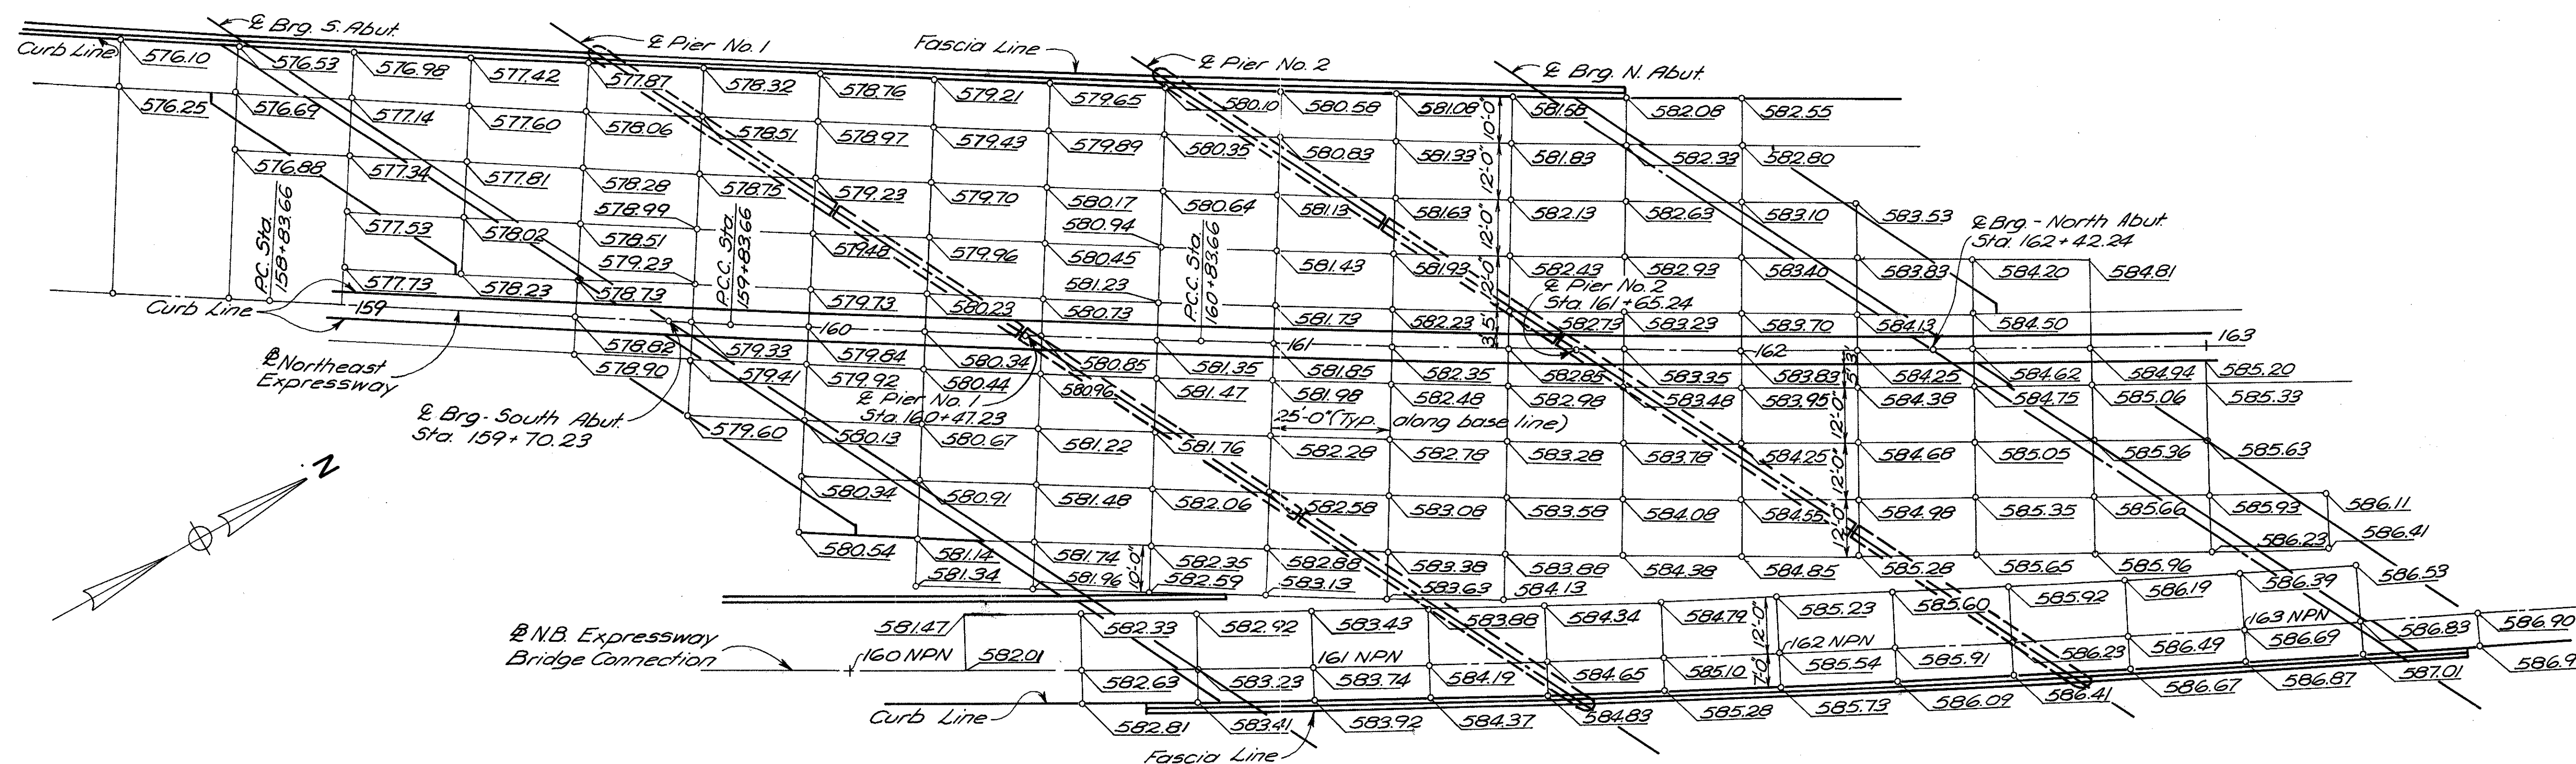 ℄ Brg. S. Abut.
℄ Pier No. 1
Fascia Line
℄ Pier No. 2
℄ Brg. N. Abut.
Curb Line
576.10 576.53 576.98 577.42 577.87 578.32 578.76 579.21 579.65 580.10 580.58 581.08 581.58 582.08 582.55
10'-0"
576.25 576.69 577.14 577.60 578.06 578.51 578.97 579.43 579.89 580.35 580.83 581.33 581.83 582.33 582.80
12'-0"
576.88 577.34 577.81 578.28 578.75 579.23 579.70 580.17 580.64 581.13 581.63 582.13 582.63 583.10 583.53
12'-0"
577.53 578.02 578.51 578.99 579.48 579.96 580.45 580.94 581.43 581.93 582.43 582.93 583.40 583.83 584.20 584.81
12'-0"
577.73 578.23 578.73 579.23 579.73 580.23 580.73 581.23 581.73 582.23 582.73 583.23 583.70 584.13 584.50
3.5'
P.C. Sta.
158+83.66
P.C.C. Sta.
159+83.66
P.C.C. Sta.
160+83.66
℄ Brg.- North Abut.
Sta. 162+42.24
℄ Pier No. 2
Sta. 161+65.24
Curb Line
159 160 161 162 163
℄ Northeast
Expressway
578.82 579.33 579.84 580.34 580.85 581.35 581.85 582.35 582.85 583.35 583.83 584.25 584.62 584.94 585.20
578.90 579.41 579.92 580.44 580.96 581.47 581.98 582.48 582.98 583.48 583.95 584.38 584.75 585.06 585.33
℄ Pier No. 1
Sta. 160+47.23
℄ Brg.- South Abut.
Sta. 159+70.23
25'-0" (Typ. along base line)
12'-0"
579.60 580.13 580.67 581.22 581.76 582.28 582.78 583.28 583.78 584.25 584.68 585.05 585.36 585.63
12'-0"
580.34 580.91 581.48 582.06 582.58 583.08 583.58 584.08 584.55 584.98 585.35 585.66 585.93 586.11
12'-0"
580.54 581.14 581.74 582.35 582.88 583.38 583.88 584.38 584.85 585.28 585.65 585.96 586.23 586.41
10'-0"
581.34 581.96 582.59 583.13 583.63 584.13
N
581.47 582.33 582.92 583.43 583.88 584.34 584.79 585.23 585.60 585.92 586.19 586.39 586.53
12'-0"
℄ N.B. Expressway
Bridge Connection
160 NPN 161 NPN 162 NPN 163 NPN
582.01 582.63 583.23 583.74 584.19 584.65 585.10 585.54 585.91 586.23 586.49 586.69 586.83 586.90
7'-0"
Curb Line
582.81 583.41 583.92 584.37 584.83 585.28 585.73 586.09 586.41 586.67 586.87 587.01 586.9
Fascia Line